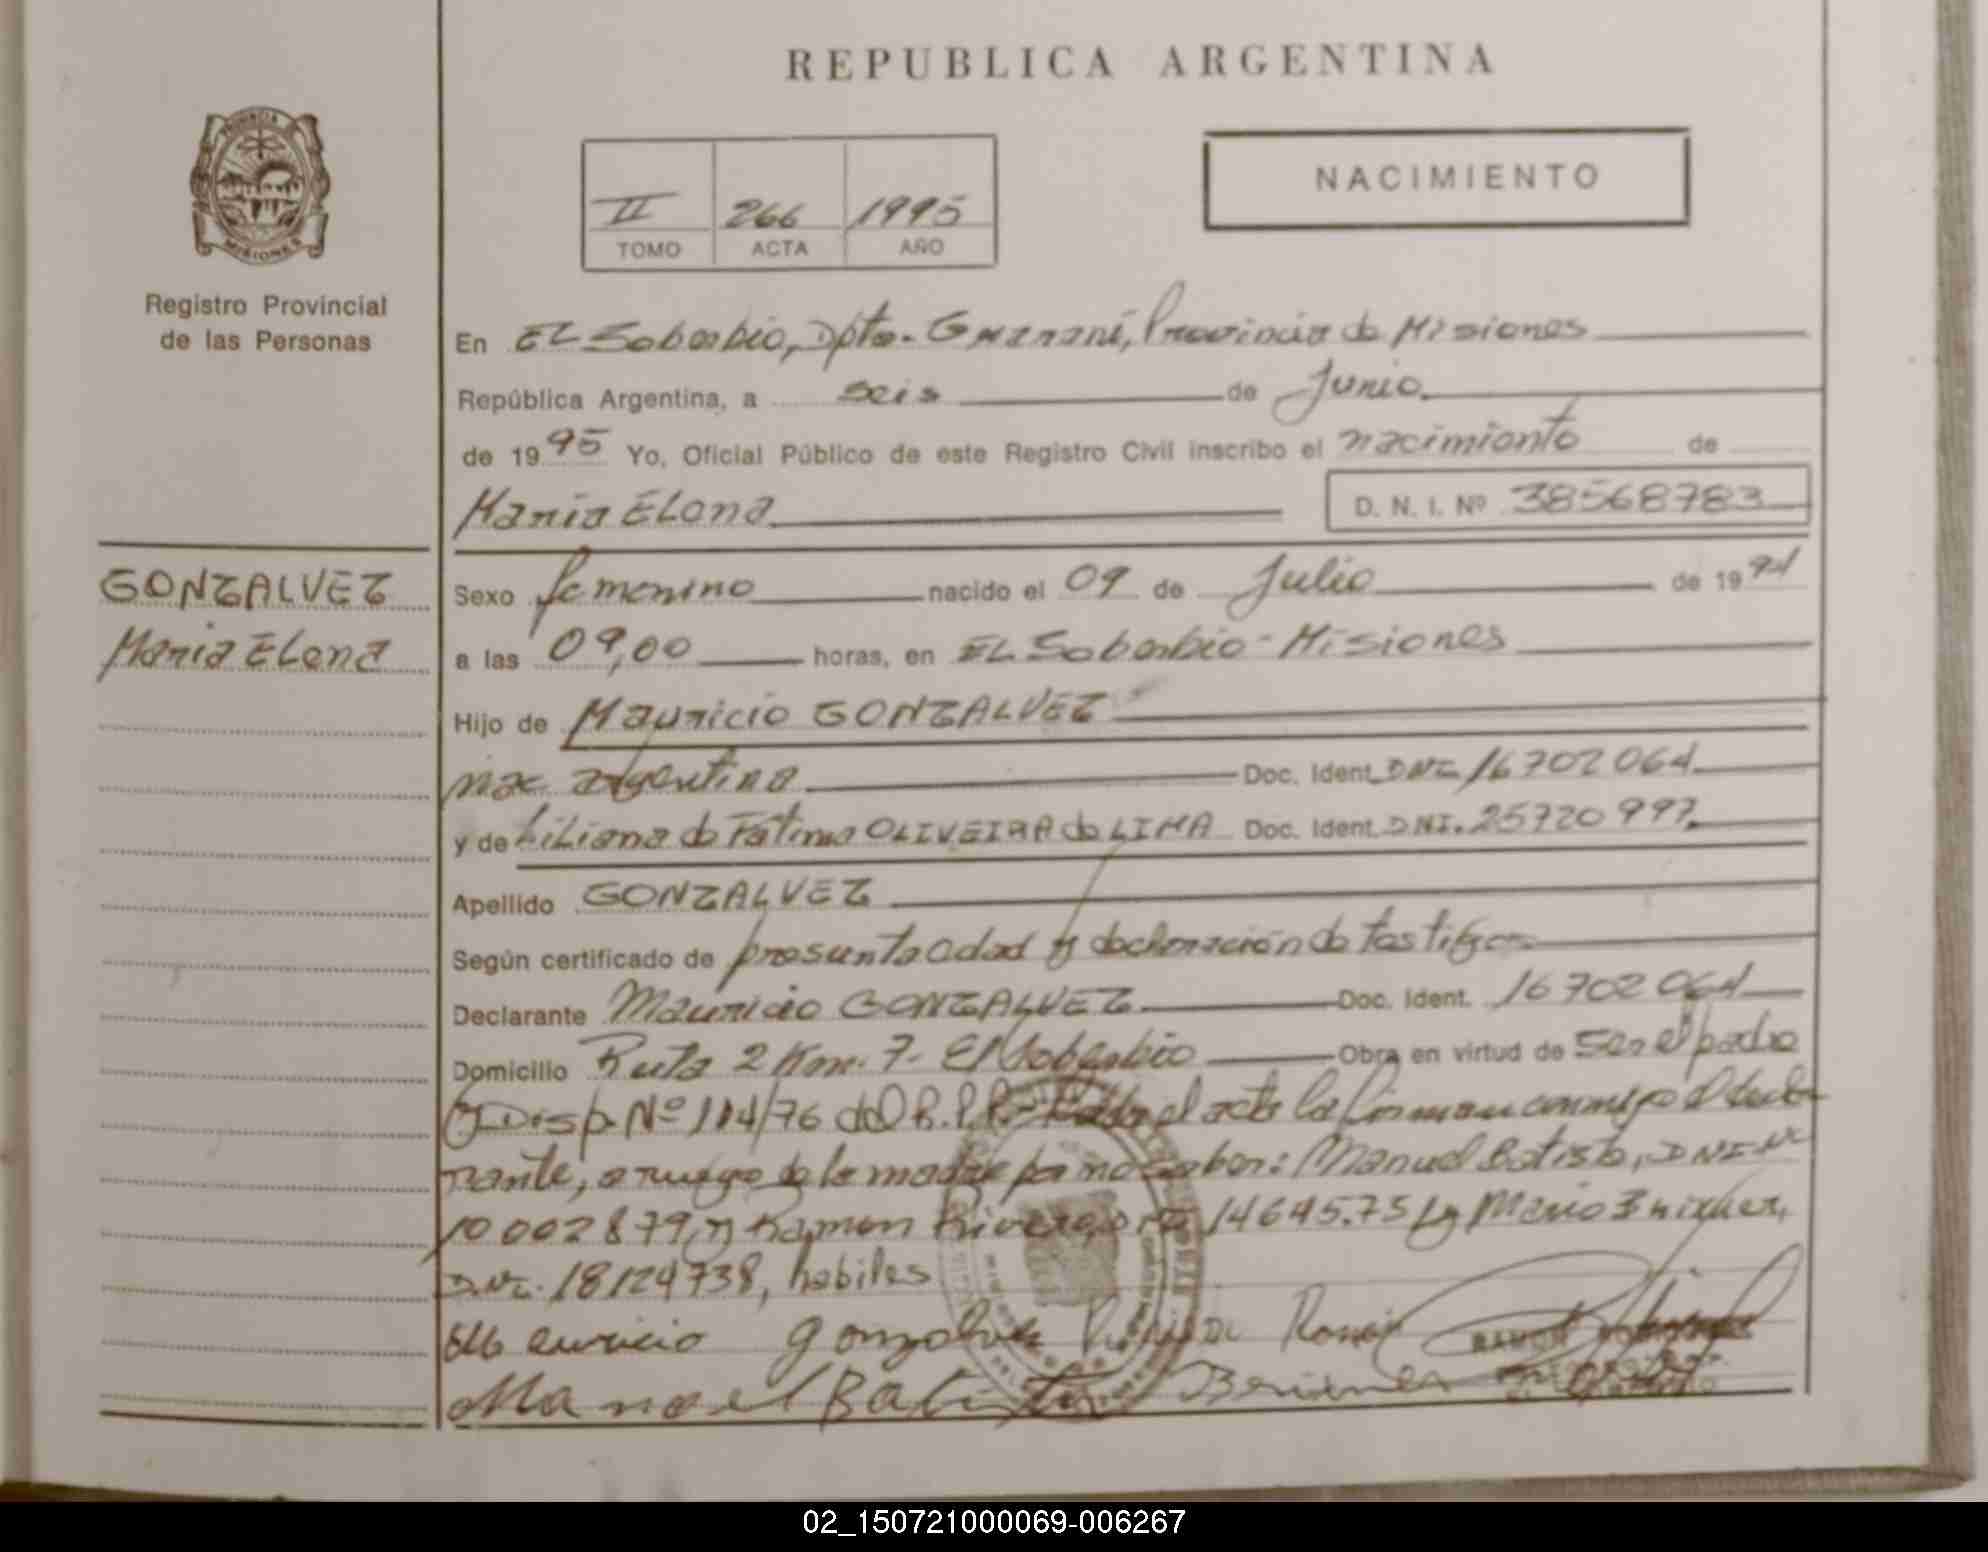 REPUBLICA ARGENTINA
PROVINCIA
MISIONES
Registro Provincial
de las Personas
II 266 1995
TOMO ACTA AÑO
NACIMIENTO
En EL Soberbio, Dpto. Guaraní, Provincia de Misiones
República Argentina, a seis de Junio
de 1995 Yo, Oficial Público de este Registro Civil inscribo el nacimiento de
María Elena D. N. I. Nº 38568783
GONZALVEZ
María Elena
Sexo femenino nacido el 09 de Julio de 1994
a las 09,00 horas, en EL Soberbio - Misiones
Hijo de Mauricio GONZALVEZ
nac. argentina Doc. Ident. DNI 16702064
y de Liliana de Fátima OLIVEIRA de LIMA Doc. Ident. DNI. 25720997
Apellido GONZALVEZ
Según certificado de presunta edad y declaración de testigos
Declarante Mauricio GONZALVEZ Doc. Ident. 16702064
Domicilio Ruta 2 Km. 7- El Soberbio Obra en virtud de ser el padre
y Disp. Nº 114/76 del R.P.P.- el acta la firman conmigo el decla-
rante, a ruego de la madre por no saber: Manuel Batista, DNI Nº
10002879, y Ramon Rivero, 14645.75 y Mario
D.N.I. 18124738, habiles
Mauricio gonzalvez Ramon
Manoel Batista
02_150721000069-006267